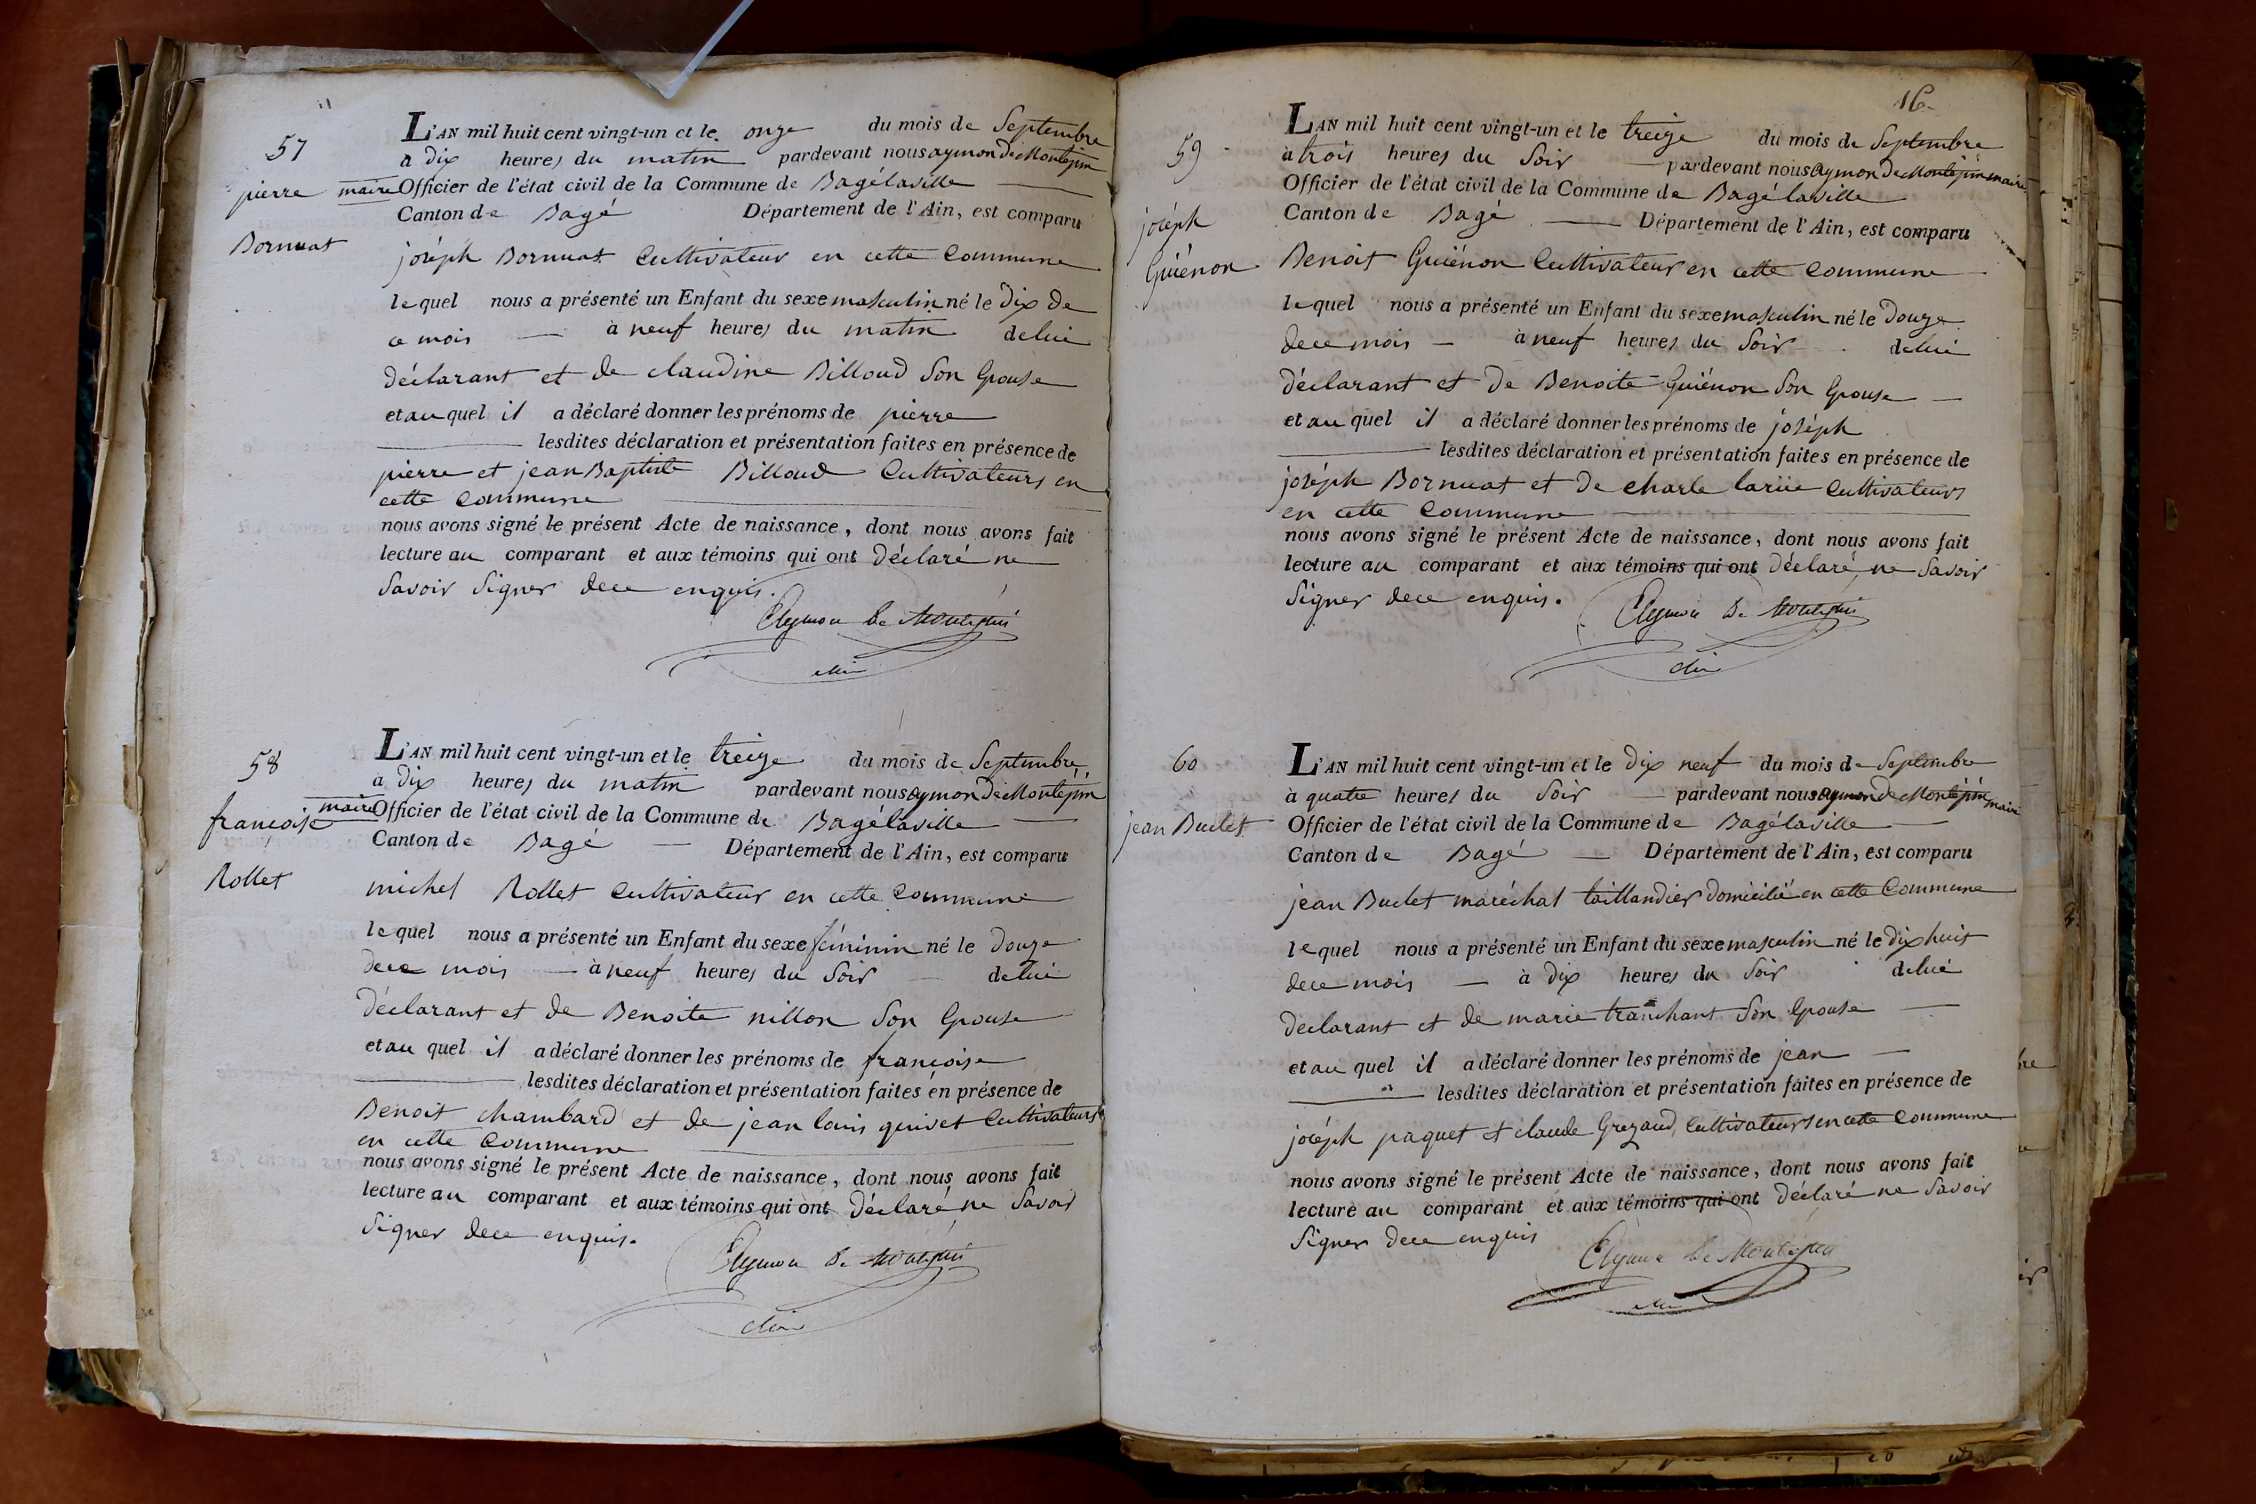 57
pierre
Bornuat
L'AN mil huit cent vingt-un et le onze du mois de Septembre
a dix heures du matin pardevant nous aymon De Montépin
maire Officier de l'état civil de la Commune de Bagélaville
Canton de Bagé Département de l'Ain, est comparu
joséph Bornuat Cultivateur en cette Commune
lequel nous a présenté un Enfant du sexe masculin né le dix de
ce mois à neuf heures du matin de lui
déclarant et de claudine Billoud Son Epouse
et au quel il a déclaré donner les prénoms de pierre
lesdites déclaration et présentation faites en présence de
pierre et jean Baptiste Billoud Cultivateurs en
cette Commune
nous avons signé le présent Acte de naissance, dont nous avons fait
lecture au comparant et aux témoins qui ont déclaré ne
Savoir Signer de ce enquis.
Aymon de Montépin
58
françoise
Rollet
L'AN mil huit cent vingt-un et le treize du mois de Septembre
à dix heures du matin pardevant nous aymon De Montépin
maire Officier de l'état civil de la Commune de Bagélaville
Canton de Bagé Département de l'Ain, est comparu
michel Rollet Cultivateur en cette Commune
lequel nous a présenté un Enfant du sexe féminin né le douze
de ce mois à neuf heures du Soir de lui
déclarant et de Benoite nillon Son Epouse
et au quel il a déclaré donner les prénoms de françoise
lesdites déclaration et présentation faites en présence de
Benoit chambard et de jean louis quivet Cultivateurs
en cette Commune
nous avons signé le présent Acte de naissance, dont nous avons fait
lecture au comparant et aux témoins qui ont déclaré ne Savoir
Signer de ce enquis.
Aymon de Montépin
16
59
joséph
Guiénon
L'AN mil huit cent vingt-un et le treize du mois de Septembre
à trois heures du Soir pardevant nous Aymon De Montépin maire
Officier de l'état civil de la Commune de Bagélaville
Canton de Bagé Département de l'Ain, est comparu
Benoit Guiénon Cultivateur en cette Commune
lequel nous a présenté un Enfant du sexe masculin né le douze
de ce mois à neuf heures du Soir de lui
déclarant et de Benoite Guiénon Son Epouse
et au quel il a déclaré donner les prénoms de joséph
lesdites déclaration et présentation faites en présence de
joséph Bornuat et de charle lariie Cultivateurs
en cette Commune
nous avons signé le présent Acte de naissance, dont nous avons fait
lecture au comparant et aux témoins qui ont déclaré ne Savoir
Signer de ce enquis.
Aymon De Montépin
60
jean Buclet
L'AN mil huit cent vingt-un et le dix neuf du mois de Septembre
à quatre heures du Soir pardevant nous Aymon De Montépin maire
Officier de l'état civil de la Commune de Bagélaville
Canton de Bagé Département de l'Ain, est comparu
jean Buclet maréchal taillandier domicilié en cette Commune
lequel nous a présenté un Enfant du sexe masculin né le dix huit
de ce mois à dix heures du Soir de lui
déclarant et de marie tranchant Son Epouse
et au quel il a déclaré donner les prénoms de jean
lesdites déclaration et présentation faites en présence de
joséph paquet et claude Grezaud, Cultivateurs en cette Commune
nous avons signé le présent Acte de naissance, dont nous avons fait
lecture au comparant et aux témoins qui ont déclaré ne Savoir
Signer de ce enquis
Aymon de Montépin